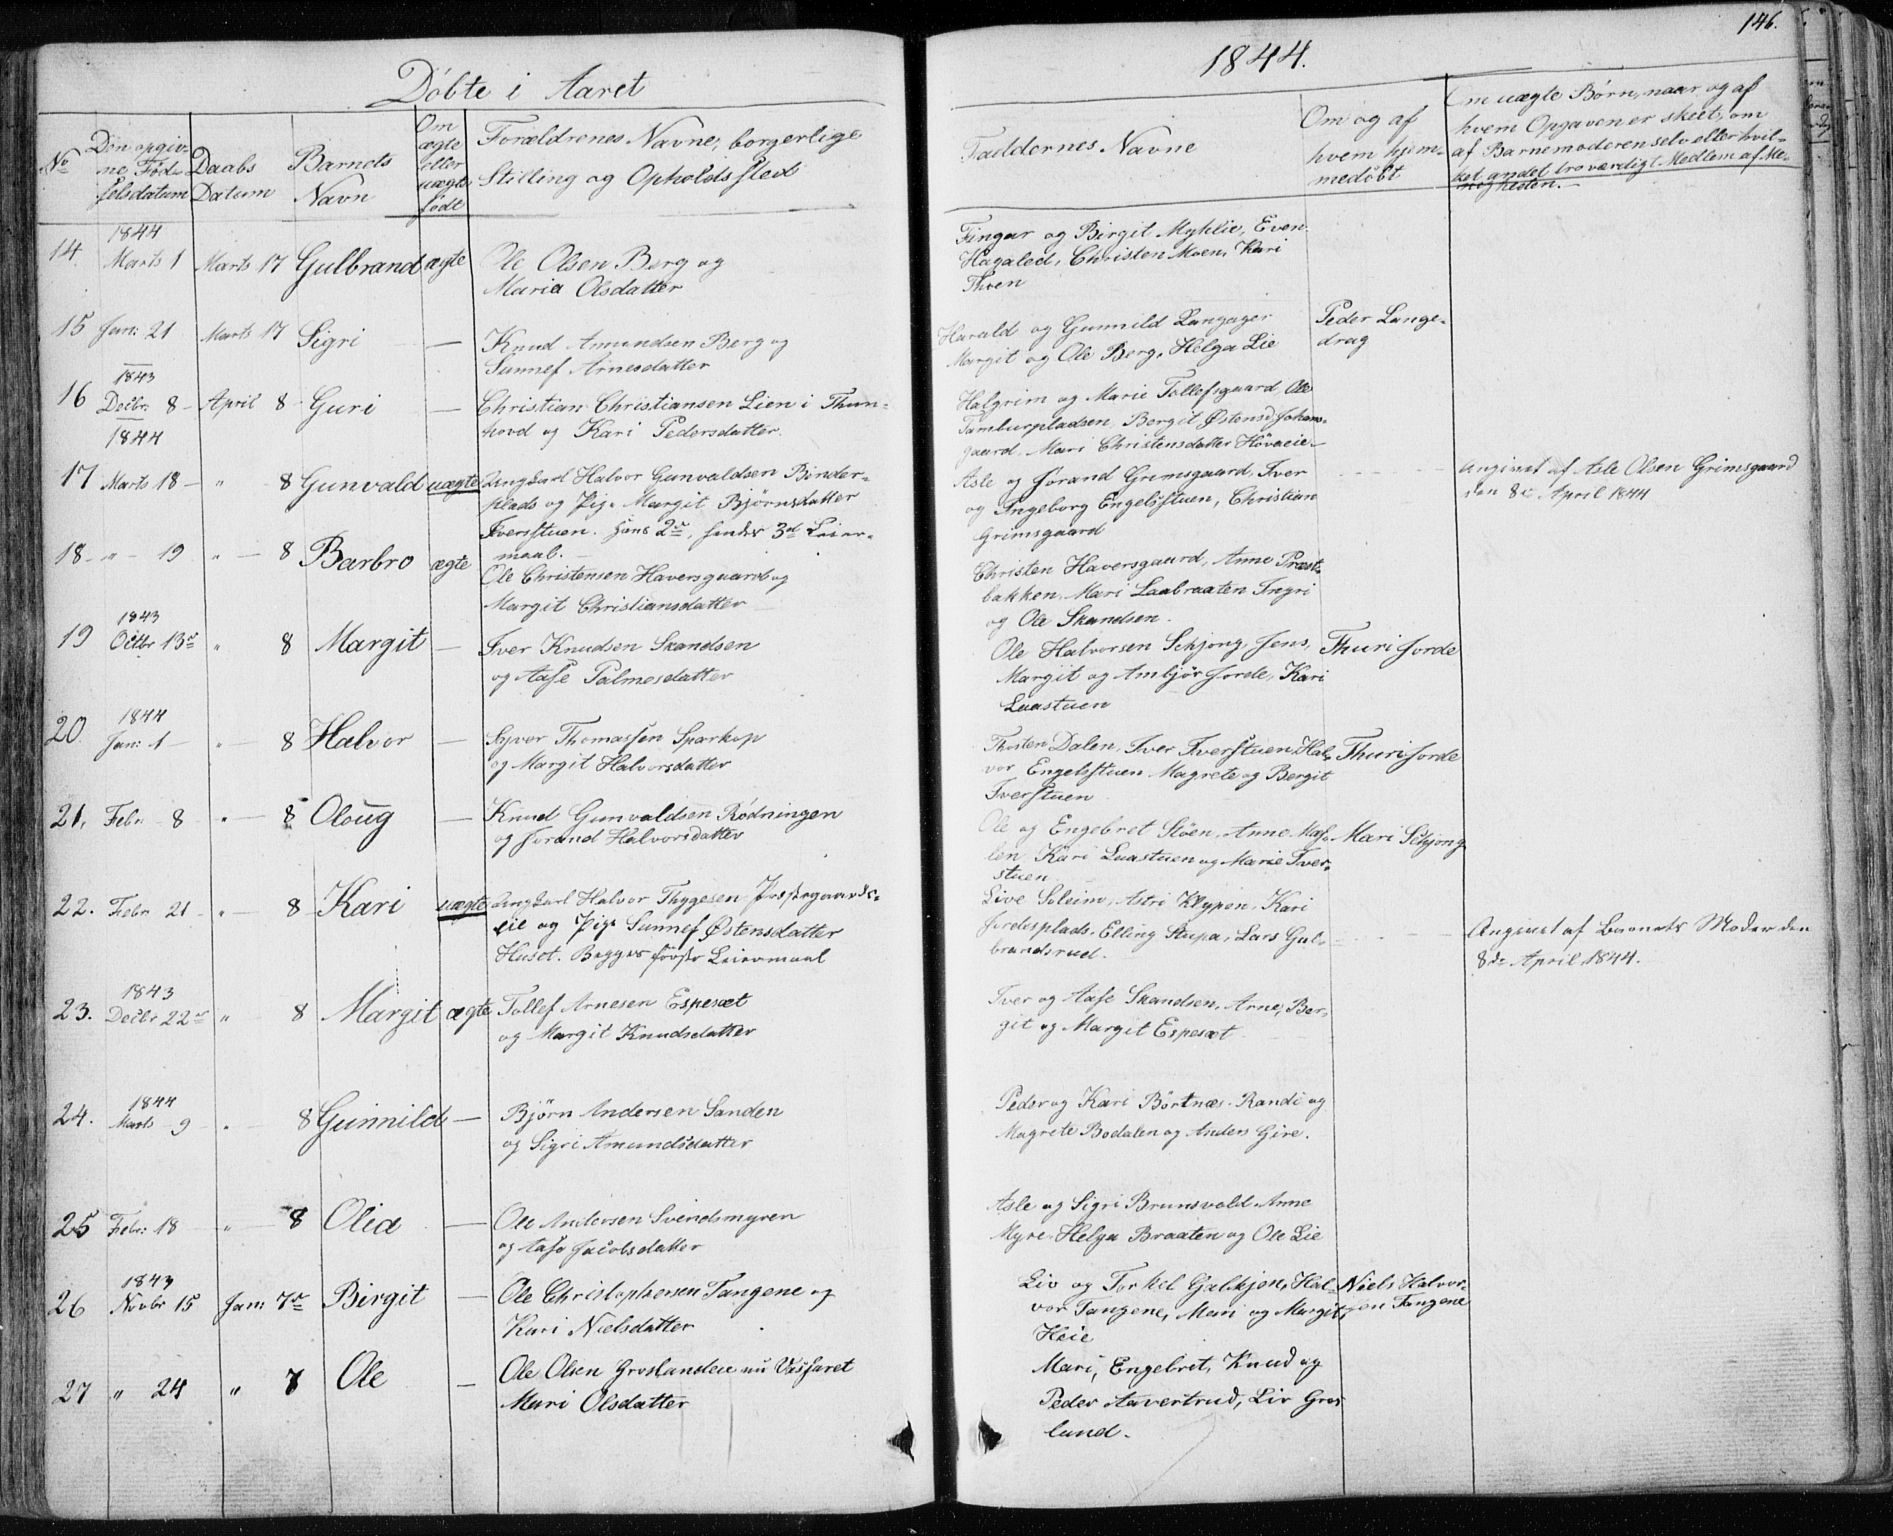 146.
Döbte i Aaret
1844.
No
Den opgiv-
ne Föd-
selsdatum
Daabs
Datum
Barnets
Navn
Om
ægte
eller
uægte
födt
Forældrenes Navne, borgerlige
Stilling og Opholdssted
Faddernes Navne
Om og af
hvem hjem-
medöbt
Om uægte Børn, naar og af
hvem Opgaven er skeet, om
af Barnemoderen selv eller hvil-
ket andet troværdigt Medlem af Me-
nigheden.
14. 1844 Marts 1 Marts 17 Gulbrand ægte
Ole Olsen Berg og
Maria Olsdatter
Fingar og Birgit Myhlie, Even
Hagaled, Christen Moen, Kari
Thoen
15 Jan: 21 Marts 17 Sigri —
Knud Amundsen Berg og
Sunnef Arnesdatter
Harald og Gunnild Langager
Margit og Ole Berg, Helga Lie
Peder Lange-
drag
16 1843 Decbr. 8 - April 8 Guri —
Christian Christiansen Lien i Thun-
hovd og Kari Pedersdatter.
Halgrim og Marie Tollefsgaard, Ole
Tamburpladsen, Bergit Østensd Johans-
gaard, Mari Christensdatter Hövaeie
1844
17 Marts 18 - " 8 Gunvald uægte
Ungkarl Halvor Gunvaldsen Binder-
plads og Pige Margit Björnsdatter
Iverstuen. Hans 2n, hendes 3d Leier-
maal.
Asle og Jorand Grimsgaard, Iver
og Ingeborg Engelstuen, Christian
Grimsgaard
Angivet af Asle Olsen Grimsgaard
den 8de April 1844
18 - " - 19 " — 8 Barbro ægte
Ole Christensen Haversgaard og
Margit Christiansdatter
Christen Haversgaard, Anne Præst-
bakken, Mari Laabraaten Ingri
og Ole Skandsen.
19 1843 Octbr 13de " 8 Margit —
Iver Knudsen Skandsen
og Aase Palmesdatter
Ole Halvorsen Schjong, Jens,
Margit og Ambjör Jorde, Kari
Laastuen
Thuri Jorde
20. 1844 Jan: 1 — " — 8 Halvor —
Syver Thomassen Sparkop
og Margit Halvorsdatter
Thosten Dalen, Iver Iverstuen, Hal-
vor Engelstuen Magrete og Bergit
Iverstuen
Thuri Jorde
21. Febr 8 " — 8 Oloug —
Knud Gunvaldsen Rödningen
og Jorand Halvorsdatter
Ole og Engebret Stöen, Anne
len, Kari Laastuen og Marie Iver-
stuen
Mari Schjong
22. Febr 21 - " — 8 Kari uægte
Ungkarl Halvor Thygesen Præstegaards-
eie og Pige Sunnef Østensdatter
Huset. Begges første Leiermaal
Live Soleim, Astri Klypen, Kari
Jordesplads, Elling Stupa, Lars Gul-
brandsrud.
Angivet af Barnets Moder den
8de April 1844.
23. 1843 Decbr 22de " — 8 Margit ægte
Tollef Arnesen Espesæt
og Margit Knudsdatter
Iver og Aase Skandsen, Arne, Ber-
git og Margit Espesæt
24. 1844 Marts 9 - " — 8 Gunnild —
Bjørn Andersen Sanden
og Sigri Amundsdatter
Peder og Kari Börtnæs. Randi og
Magrete Bodalen og Anders Gire.
25 Febr: 18 " — 8 Olia —
Ole Andersen Svendsmyren
og Aase Jacobsdatter
Asle og Sigri Brunsvold Anne
Myre Helga Braaten og Ole Lie
26 1843 Novbr 15 Jan: 7de Birgit —
Ole Christophersen Tangene og
Kari Nielsdatter
Liv og Torkel Galkjen, Hal-
vor Tangene, Mari og Margit
Heie
Niels Halvor-
sen Tangene
27 " 24 " 7 Ole —
Ole Olsen Groslandeie nu Vasfaret
Mari Olsdatter
Mari, Engebret, Knud og
Peder Aavertrud, Liv Gros
land.